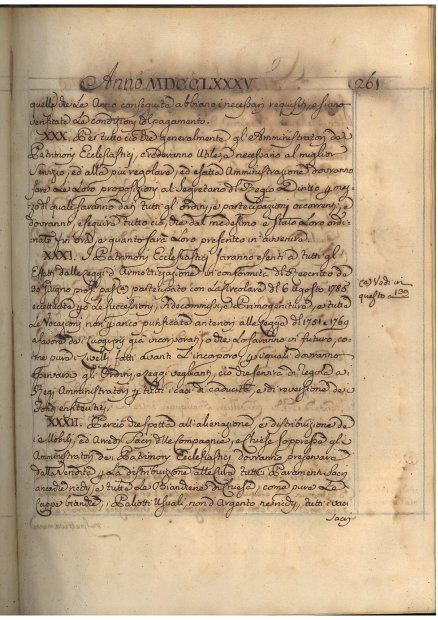 Anno MDCCLXXXV
261
quelle che le Anno conseguita abbiano i necessari requisiti, e siano
verificate le condizioni del pagamento.
XXX. Per tutto ciò che generalmente gl'Amministratori de
Patrimoni Ecclesiastici, crederanno utile, e necessario al miglior
servizio, ed alla più regolare, ed esatta Amministrazione dovranno
fare le Loro proposizioni al Segretario del Regio Diritto per mez-
zo del quale saranno dati tutti gl'ordini, e partecipazioni occorrenti, e
dovranno eseguire tutto ciò, che dal medesimo è stato Loro ordi-
nato fin ora, e quanto sarà Loro prescritto in avvenire.
XXXI. I Patrimoni Ecclesiastici saranno esenti da tutti gl'
Effetti dalle Leggi d'Ammortizazione in conformità del
30 Giugno partecipato con la Circolare del 6 Agosto 1785
eccettuate le successioni, Fidecommissi, e Primogeniture, e tutte
le Vocazioni non per anco purificate anteriori alle Leggi del 1751 e 1769
a favore de Luoghi già incorporati, o che lo saranno in futuro, co-
me pure i Livelli fatti avanti l'incorporo per i quali dovranno
osservare gl'Ordini, e Leggi veglianti, ciò che servirà di regola a
Regi Amministratori per tutti i casi di caducità, e di reversione de
Fondi enfiteutici.
(a) Vedi in
questo a 130
XXXII. Perciò che spetta all'alienazione, e distribuzione de
i Mobili, ed Arredi Sacri delle Compagnie, e Chiese soppresse gl'
Amministratori dei Patrimoni Ecclesiastici, dovranno preservare
dalla vendita per la distribuzione alle Cure tutti i Paramenti Sacri
ancorchè ricchi, e tutta la Biancheria di Chiesa, come pure le
Cappe bianche, i Paliotti usuali, non d'Argento nè ricchi, tutti i vasi
Sacri